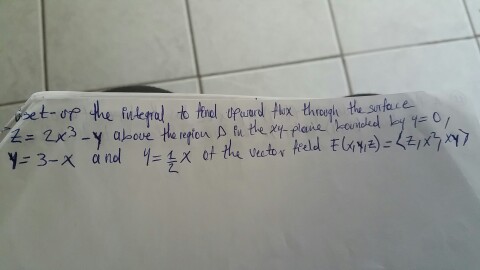 set-up the integral to find upward flux through the surface
z = 2x³ - y above the region D in the xy-plane bounded by y = 0,
y = 3 - x and y = 1/2 x of the vector field F(x,y,z) = ⟨z, x², xy⟩